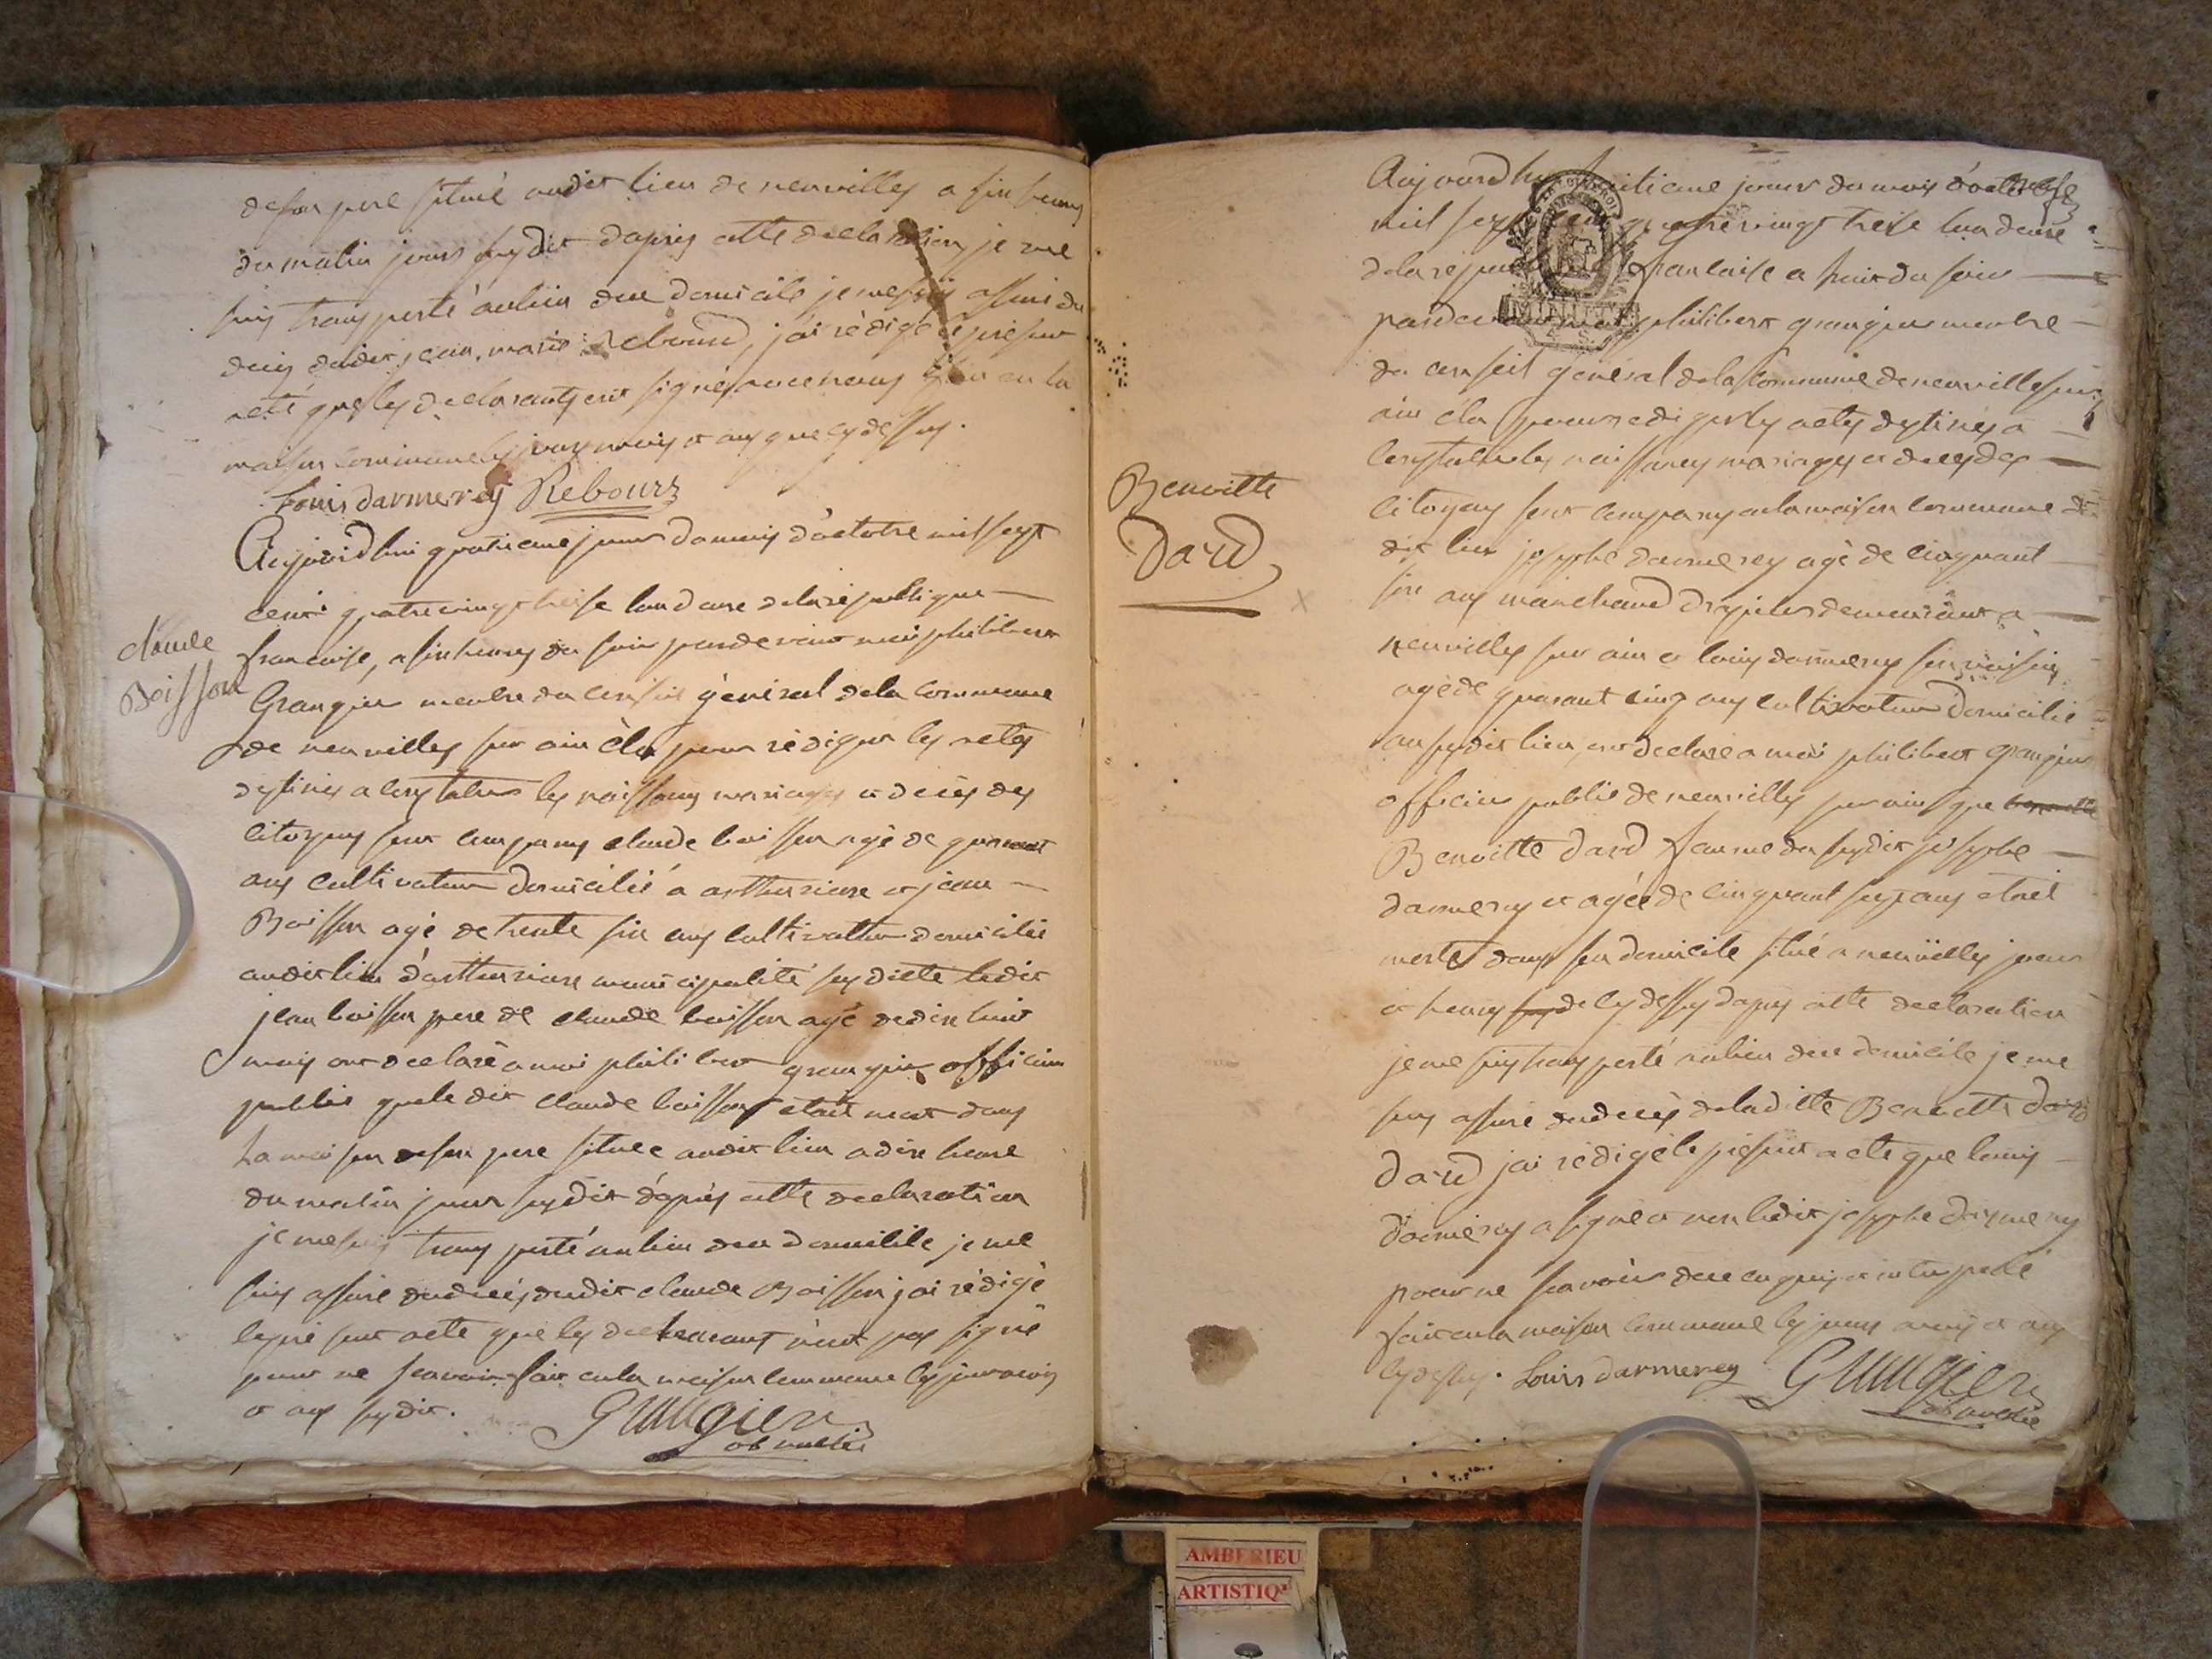 de son pere situé audit lieu de neuvilles a six heures
du matin jours susdit d'apres cette declaration je me
suis transporté au lieu due domicile je me suis assuré du
deces dudit jean marie Rebourd, j'ai rédigé le présent
acte que les declarants ont signé avec nous fait en la
maison commune les jours mois et ans que cy dessus.
Louis darmerey Rebours
Aujourdhui quatrieme jour du mois d'octobre mil sept
cent quatre vingt treise lan deuxe de la republique
francaise, a six heures du soir pardevant moi philibert
Grangier membre du conseil géneral de la commune
de neuvilles sur ain élu pour rédiger les actes
destinés a constater les naissances mariages et deces des
citoyens sont comparus claude boisson agé de quarant
ans cultivateur domicilié a arthuriere et jean
Boisson agé de trente six ans cultivatteur domicilié
audit lieu d'arthuriere municipalité susditte ledit
jean boisson pere de claude boisson agé de dix huit
mois ont declaré a moi philibert grangier officier
public que le dit claude boisson était mort dans
La maison de son pere située audit lieu a dixe heure
du matin jour susdit d'aprés cette declaration
je me suis transporté au lieu due domicile je me
suis assuré du decés dudit claude Boisson j'ai rédigé
le présent acte que les declarants n'ont pas signé
pour ne scavoir fait en la maison commune les jour mois
et ans susdit. Grangier
of public
claude
Boisson
Aujourdhuy huitieme jour du mois d'octobre
mil sept cent quatre vingt treise lan deuxe
de la republique francaise a huit du soir
pardevant moi philibert grangier membre
du conseil général de la commune de neuville sur
ain élu pour rediger les actes destinés a
constater les naissances mariages et deces des
citoyens sont comparus a la maison commune du
dit lieu josephe darmerey agé de cinquant
six ans marchand drapier demeurant a
neuvilles sur ain et louis darmerey son voisin
agé de quarant cinq ans cultivateur domicilié
au susdit lieu, ont declaré a moi philibert grangier
officier public de neuvilles sur ain que
Benoitte dard femme du susdit josephe
darmerey et agée de cinquant sept ans etoit
morte dans son domicile situé a neuvilles jour
et heures de cy dessus d'apres cette declaration
je me suis transporté au lieu due domicile je me
suis assuré du decès de la ditte Benoitte dard
dard j'ai rédigé le présent acte que louis
darmerey a signé et non ledit josephe darmerey
pour ne scavoir de ce enquis et interpellé
fait en la maison commune les jours mois et ans
cy dessus. Louis darmerey Grangier
of public
Benoitte
Dard
MINUTE
AMBERIEU
ARTISTIQ